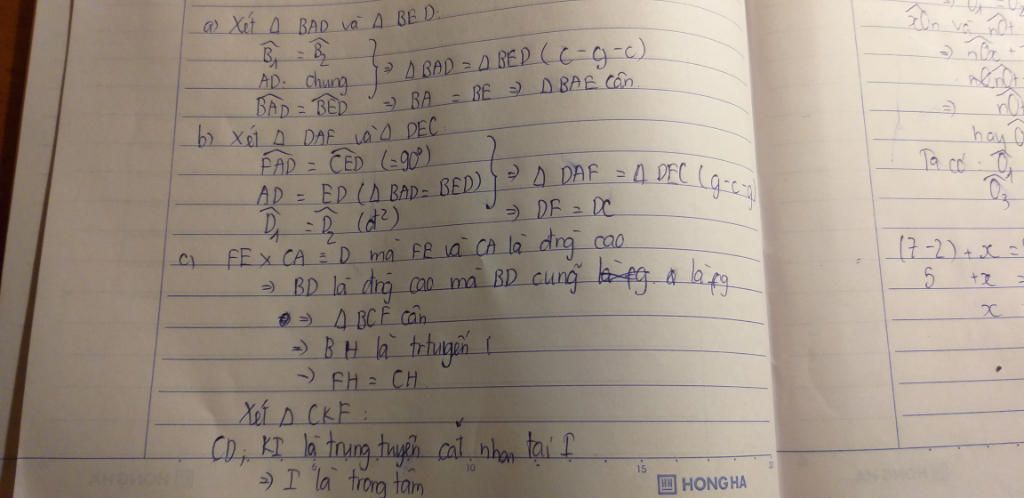 a) Xét Δ BAD và Δ BED:
B̂1 = B̂2
AD: chung
BAD = BED
⇒ Δ BAD = Δ BED (c-g-c)
⇒ BA = BE ⇒ Δ BAE cân
b) Xét Δ DAF và Δ DEC
FAD = CED (=90°)
AD = ED (Δ BAD = BED)
D̂1 = D̂2 (đ²)
⇒ Δ DAF = Δ DEC (g-c-g)
⇒ DF = DC
c) FE x CA = D mà FE và CA là đng cao
⇒ BD là đng cao mà BD cũng là fg
⇒ Δ BCF cân
⇒ BH là trtuyến
⇒ FH = CH
Xét Δ CKF:
CD; KI là trung tuyến cắt nhau tại I
⇒ I là trọng tâm
5 10 15
HONG HA
xOn và nOt
⇒ nOx +
⇒
hay
Ta có: Ô1
Ô3
(7-2) + x =
5 + x =
x